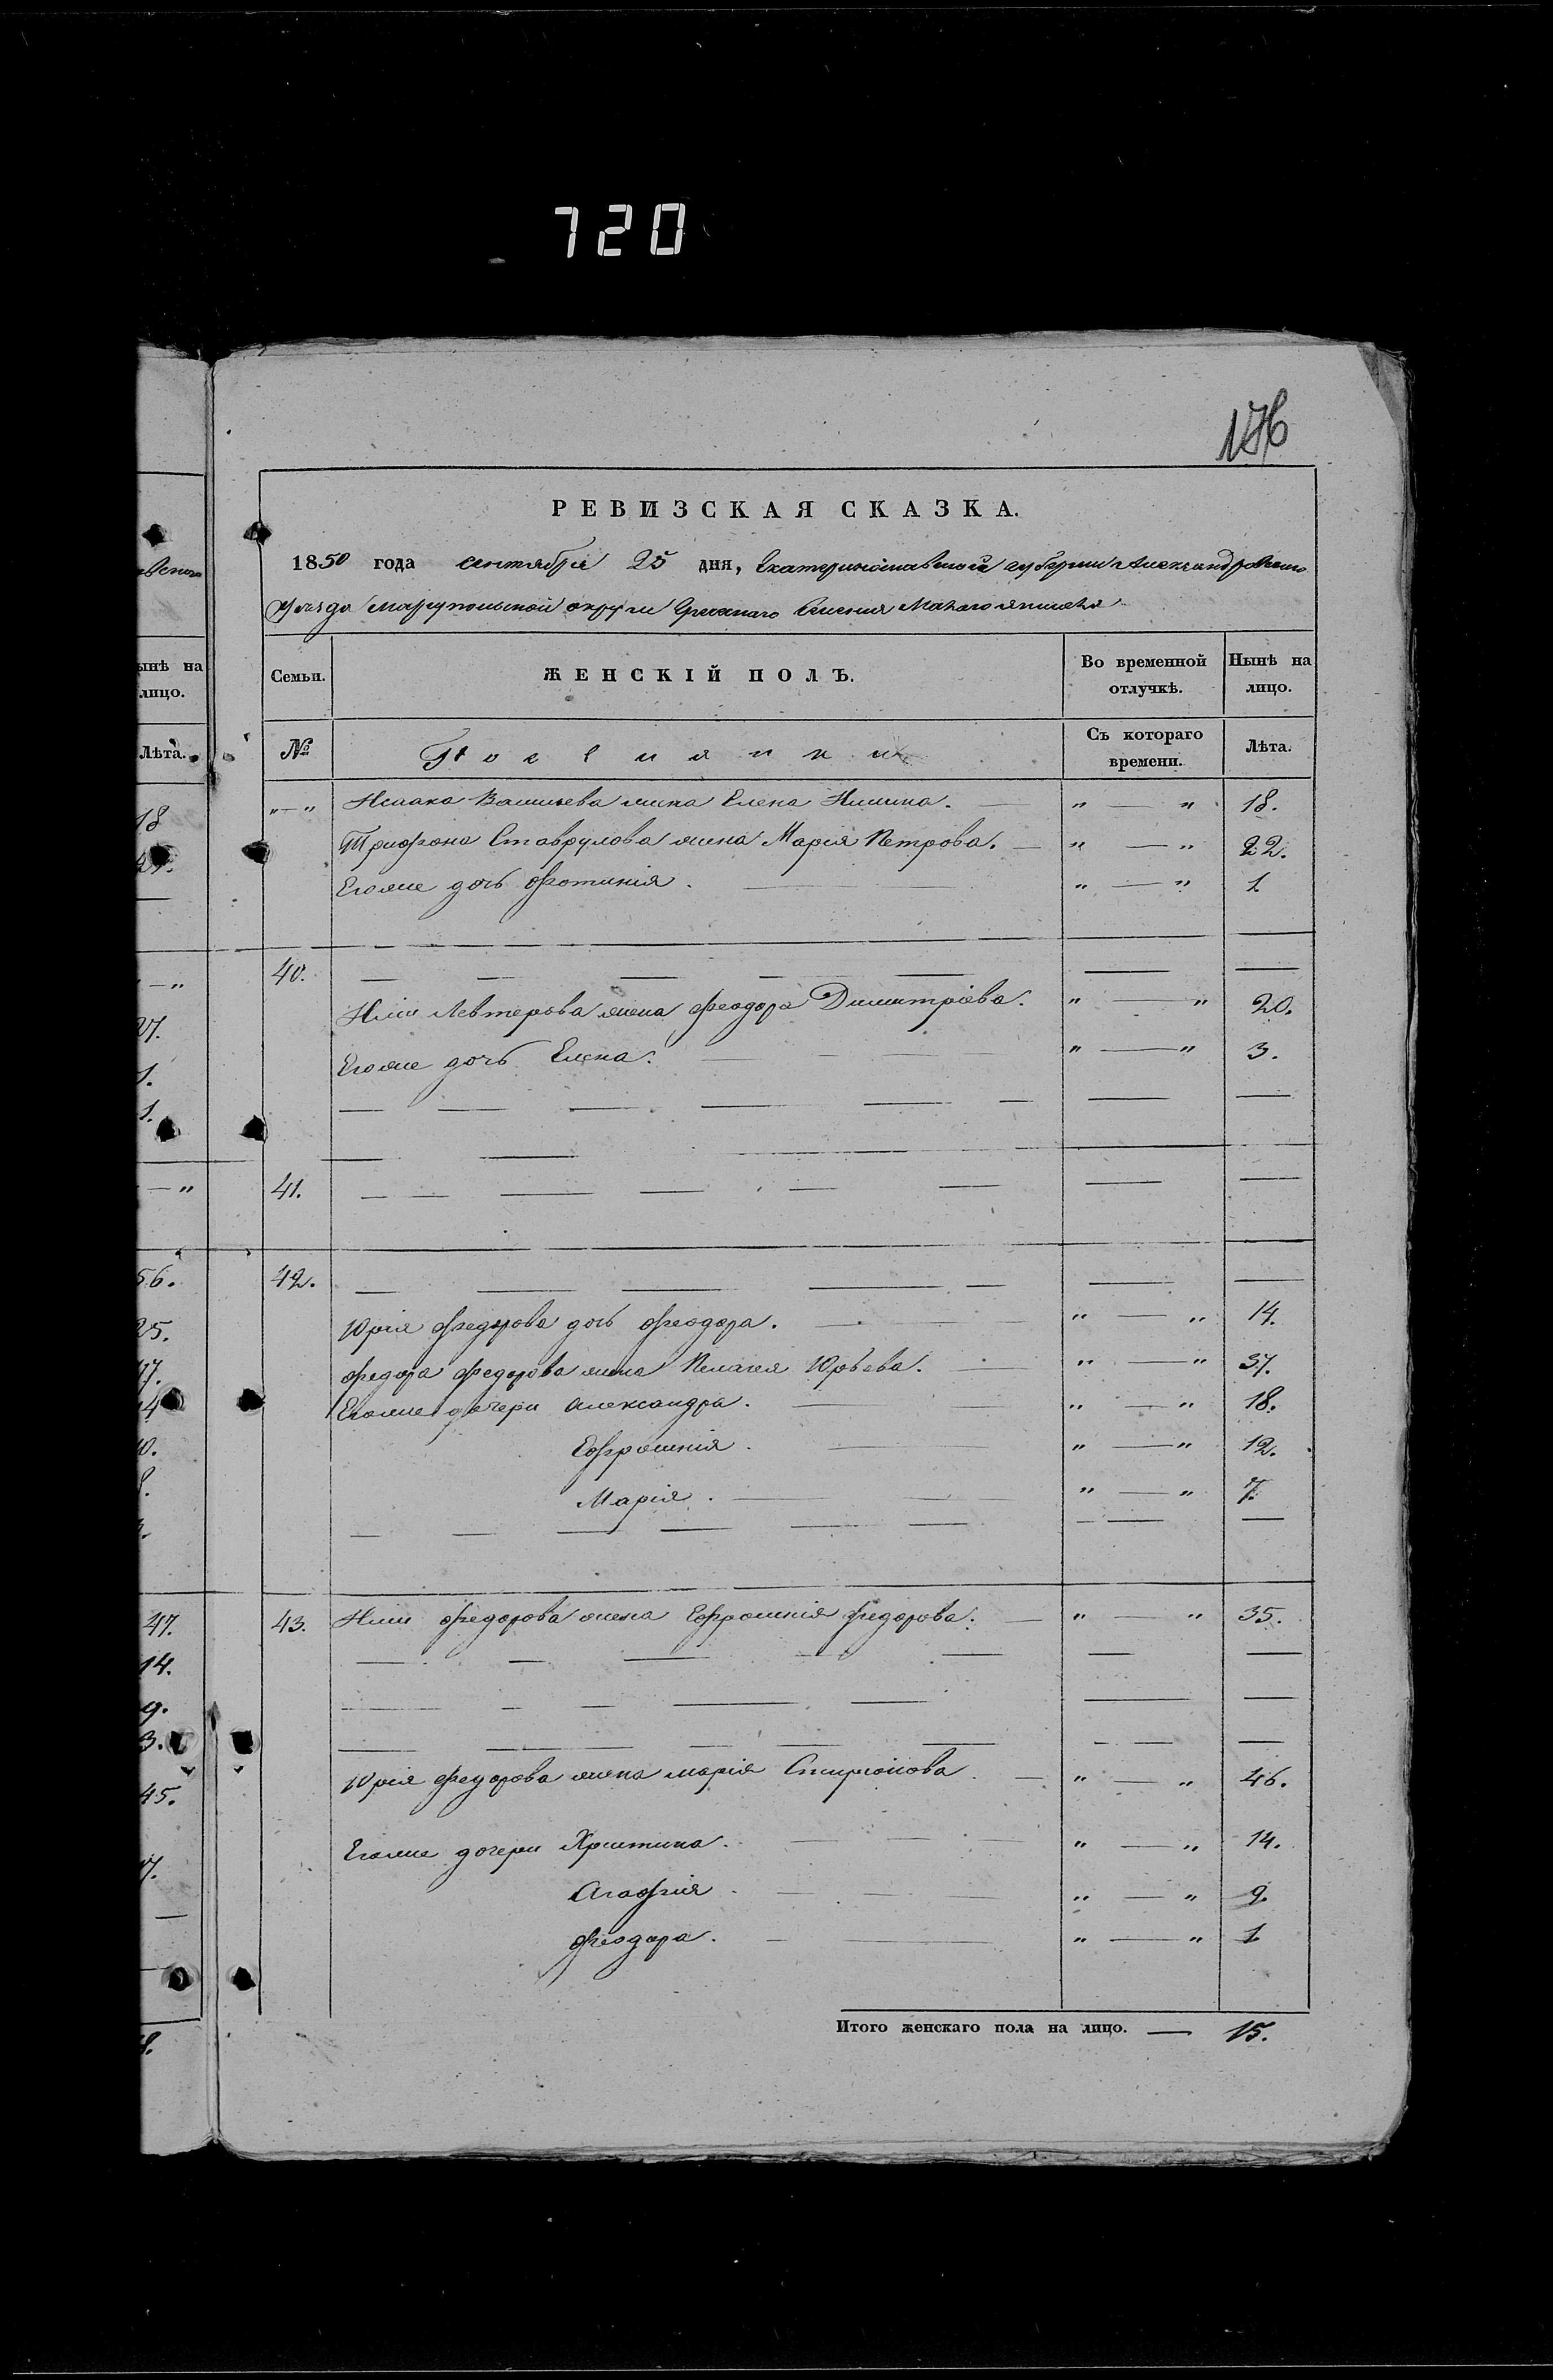 720
176
вскаго
РЕВИЗСКАЯ СКАЗКА.
1850 года Сентября 25 дня, Екатеринославской губерніи Александровскаго
уезда Мариупольской округи Греческаго Селенія Малаго Янисоля
ынѣ на
лицо.
Лѣта.
Семьи.
ЖЕНСКІЙ ПОЛЪ.
Во временной
отлучкѣ.
Нынѣ на
лицо.
№
Поселянки
Съ котораго
времени.
Лѣта.
„—„ Исаака Васильева жена Елена Ильина. — „ — „ 18.
Трифона Ставрулова жена Марія Петрова. — „ — „ 22.
Егоже дочь Фотинія. — „ — „ 1
40. — — — — —
Ильи Левтерова жена Феодора Димитріева. „ — „ 20.
Егоже дочь Елена. — „ — „ 3.
41. — — — — —
42. — — — —
Юрія Федорова дочь Феодора. — „ — „ 14.
Федора Федорова жена Пелагея Юрьева. — „ — „ 37.
Егоже дочери Александра. — „ — „ 18.
Ефросинія. — „ — „ 12.
Марія. — „ — „ 7.
43. Ильи Федорова жена Ефросинія Федорова. — „ — „ 35.
Юрія Федорова жена Марія Спиріонова — „ — „ 46.
Егоже дочери Христина. — „ — „ 14.
Агафія. — „ — „ 9.
Феодора. — „ — „ 1
Итого женскаго пола на лицо. — 15.
18
27.
1.
1.
56.
25.
47.
14.
9.
3.
45.